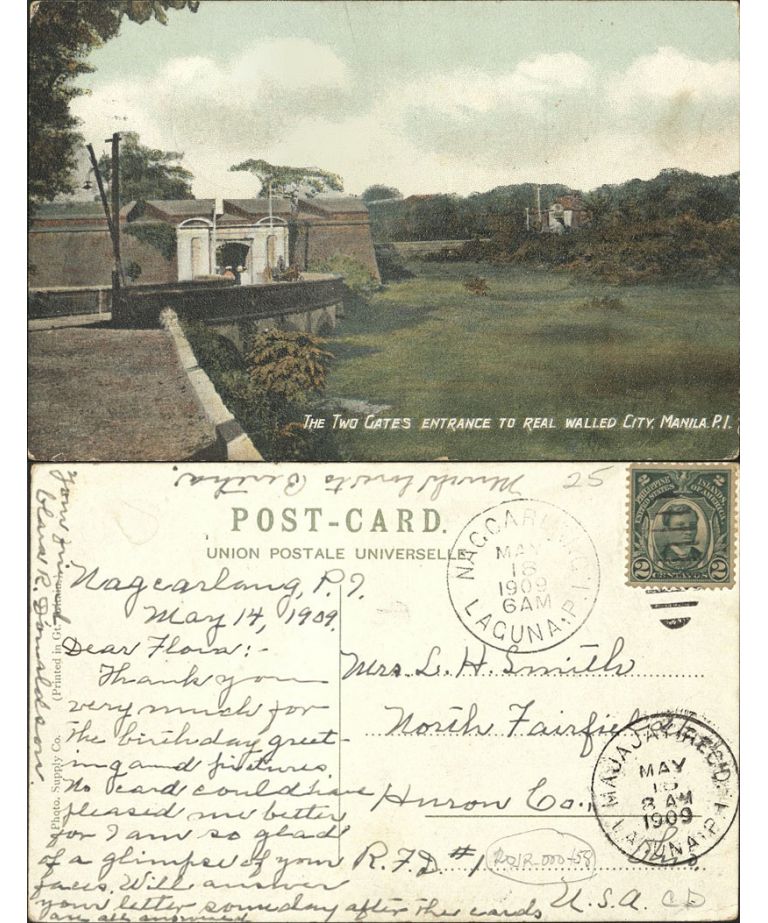 THE TWO GATES ENTRANCE TO REAL WALLED CITY, MANILA. P.I.
Much love to Bertha.
25
POST-CARD.
UNION POSTALE UNIVERSELLE
NAGCARLANG,
MAY
18
1909
6 AM
LAGUNA, P.I.
PHILIPPINE ISLANDS
UNITED STATES OF AMERICA
2 CENTAVOS 2
Nagcarlang, P.I.
May 14, 1909.
Dear Flora:-
Thank you
very much for
the birthday greet-
ing and pictures.
No card could have
pleased me better
for I am so glad
of a glimpse of your
faces. Will answer
your letter someday after the cards
are all answered
Your friend
Clara R. Donaldson.
Photo. Supply Co. (Printed in
Mrs. L. H. Smith
North Fairfield
Huron Co.,
Ohio
R.F.D. #1
U.S.A.
MAJAJAY REC'D.
MAY
18
8 AM
1909
LAGUNA, P.I.
CD